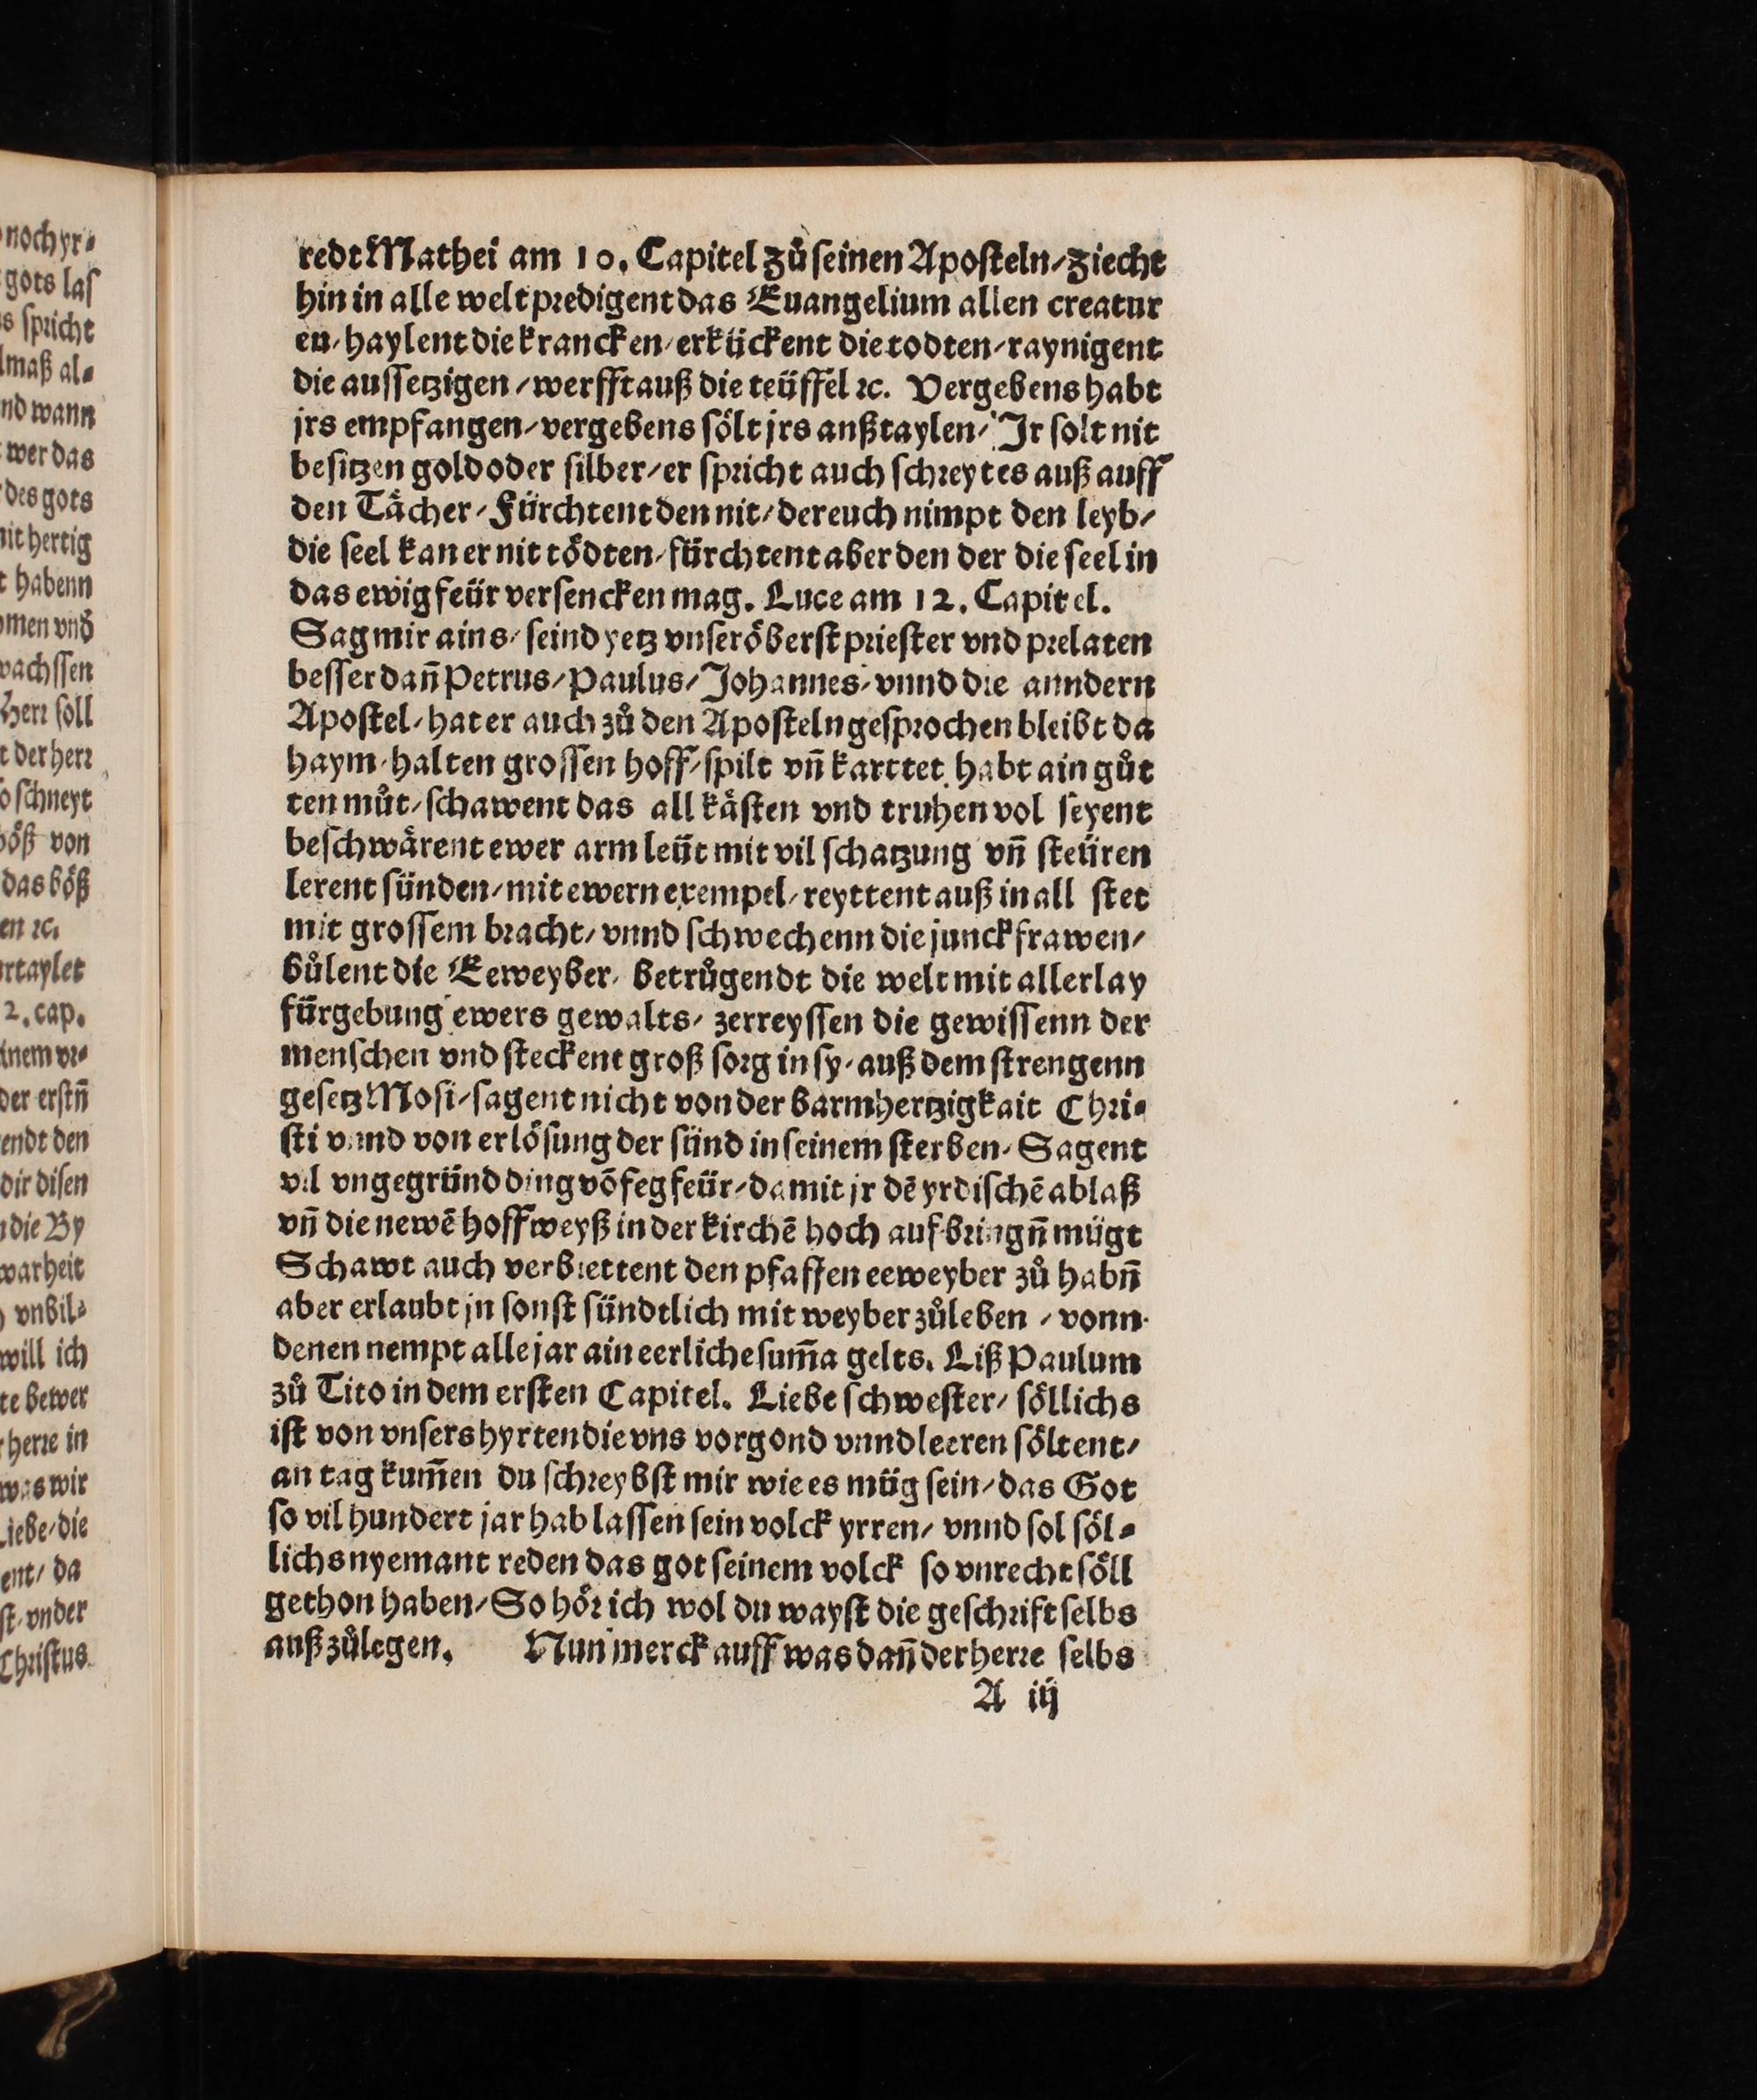 redt Mathei am 10. Capitel zůſeinen Apoſteln/ ziecht
hin in alle welt predigent das Euangelium allen creatur
en/ haylent die krancken/ erkückent die todten/ raynigent
die auſſetzigen/ werfft auß die teüffel ꝛc. Vergebens habt
jrs empfangen/ vergebens ſoͤlt jrs anßtaylen/ Jr ſolt nit
beſitzen gold oder ſilber/ er ſpricht auch ſchreyt es auß auff
den Taͤcher/ Fürchtent den nit/ der euch nimpt den leyb/
die ſeel kan er nit toͤdten/ fürchtent aber den der die ſeel in
das ewig feür verſencken mag. Luce am 12. Capitel.
Sag mir ains/ ſeind yetz vnſer oͤberſt prieſter vnd prelaten
beſſer dañ Petrus/ Paulus/ Johannes/ vnnd die anndern
Apoſtel/ hat er auch zů den Apoſteln geſprochen bleibt da
haym/ halten groſſen hoff/ ſpilt vñ karttet habt ain gůt
ten můt/ ſchawent das all kaͤſten vnd truhen vol ſeyent
beſchwaͤrent ewer arm leüt mit vil ſchatzung vñ ſteüren
lerent ſünden/ mit ewern exempel/ reyttent auß in all ſtet
mit groſſem bracht/ vnnd ſchwechenn die junckfrawen/
bůlent die Eeweyber/ betrůgendt die welt mit allerlay
fürgebung ewers gewalts/ zerreyſſen die gewiſſenn der
menſchen vnd ſteckent groß ſorg in ſy/ auß dem ſtrengenn
geſetz Moſi/ ſagent nicht von der barmhertzigkait Chri⸗
ſti vnnd von erloͤſung der ſünd in ſeinem ſterben/ Sagent
vil vngegründ ding võ fegfeür/ damit jr dẽ yrdiſchẽ ablaß
vñ die newẽ hoffweyß in der kirchẽ hoch auf bringñ mügt
Schawt auch verbiettent den pfaffen eeweyber zů habñ
aber erlaubt jn ſonſt ſündtlich mit weyber zůleben/ vonn
denen nempt alle jar ain eerliche ſum̃a gelts. Liß Paulum
zů Tito in dem erſten Capitel. Liebe ſchweſter/ ſoͤllichs
iſt von vnſers hyrten die vns vorgond vnnd leeren ſoͤltent/
an tag kum̃en du ſchreybſt mir wie es müg ſein/ das Got
ſo vil hundert jar hab laſſen ſein volck yrren/ vnnd ſol ſoͤl⸗
lichs nyemant reden das got ſeinem volck ſo vnrecht ſoͤll
gethon haben/ So hoͤr ich wol du wayſt die geſchrift ſelbs
auß zůlegen. Nun merck auff was dañ der herre ſelbs
A iij
noch yr⸗
gots laſ
s ſpricht
lmaß al⸗
nd wann
wer das
des gots
it hertig
habenn
men vnd̃
wachſſen
Herr ſoll
t der herr
o ſchneyt
oͤß von
das boͤß
en ꝛc.
rtaylet
2. cap.
inem vr⸗
der erſtñ
endt den
dir diſen
die By
warheit
vnbil⸗
will ich
te bewer
herre in
was wir
Liebe/ die
ent/ da
ſt/ vnder
Chriſtus